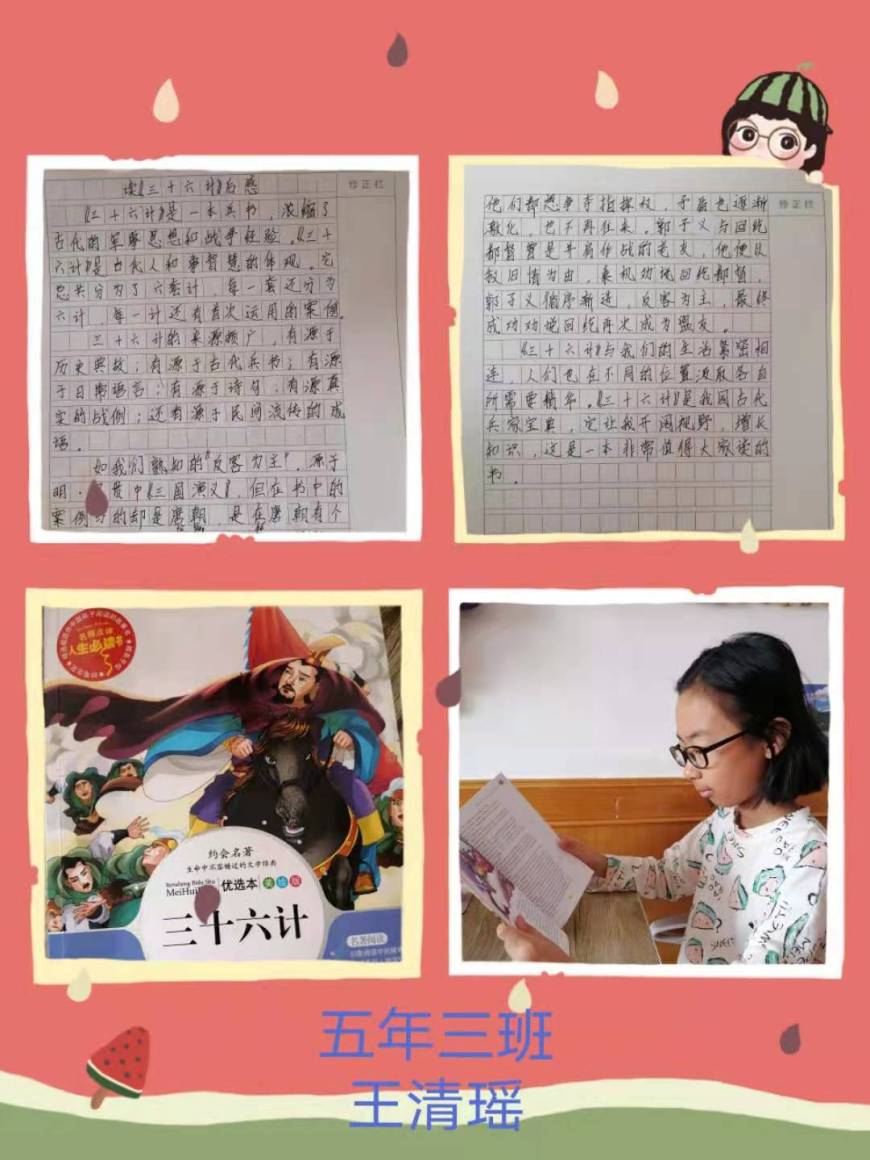 读《三十六计》后感
修正栏
《三十六计》是一本兵书，浓缩了
古代的军事思想和战争经验。《三十
六计》是古代人和事智慧的体现。它
总共分为了六套计，每一套还分为
六计，每一计还有首次运用的案例。
三十六计的来源颇广，有源于
历史典故；有源于古代兵书；有源
于日常谣言；有源于诗句；有源真
实的战例；还有源于民间流传的成
语。
如我们熟知的"反客为主"，源于
明·贯中《三国演义》，但在书中的
案例的却是唐朝，是在唐朝有个
他们都想争夺指挥权，矛盾也逐渐
激化，也不再往来。郭子义与回纥
都督曾是并肩作战的老友，他便以
叙旧情为由，乘机劝说回纥都督，
郭子义循序渐进，反客为主，最终
成功劝说回纥再次成为盟友。
《三十六计》与我们的生活紧密相
连，人们也在不同的位置汲取各自
所需要精华。《三十六计》是我国古代
兵家宝典，它让我开阔视野，增长
知识，这是一本非常值得大家读的
书。
修正栏
名师点评
人生必读书
约会名著
生命中不容错过的文学经典
MeiHui
优选本
美绘版
三十六计
名著阅读
五年三班
王清瑶